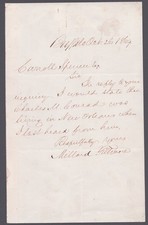 Buffalo Oct 26 1869
Carroll Spence Esq
Sir
In reply to your
inquiry I would state that
Charles M. Conrad was
living in New Orleans when
I last heard from him
Respectfully yours
Millard Fillmore